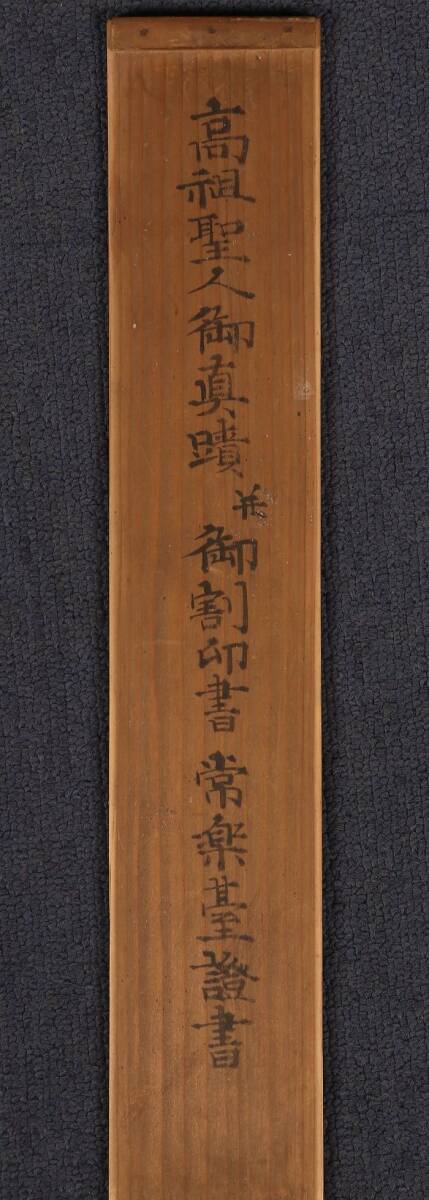 高祖聖人御真蹟並御割印書常楽臺證書